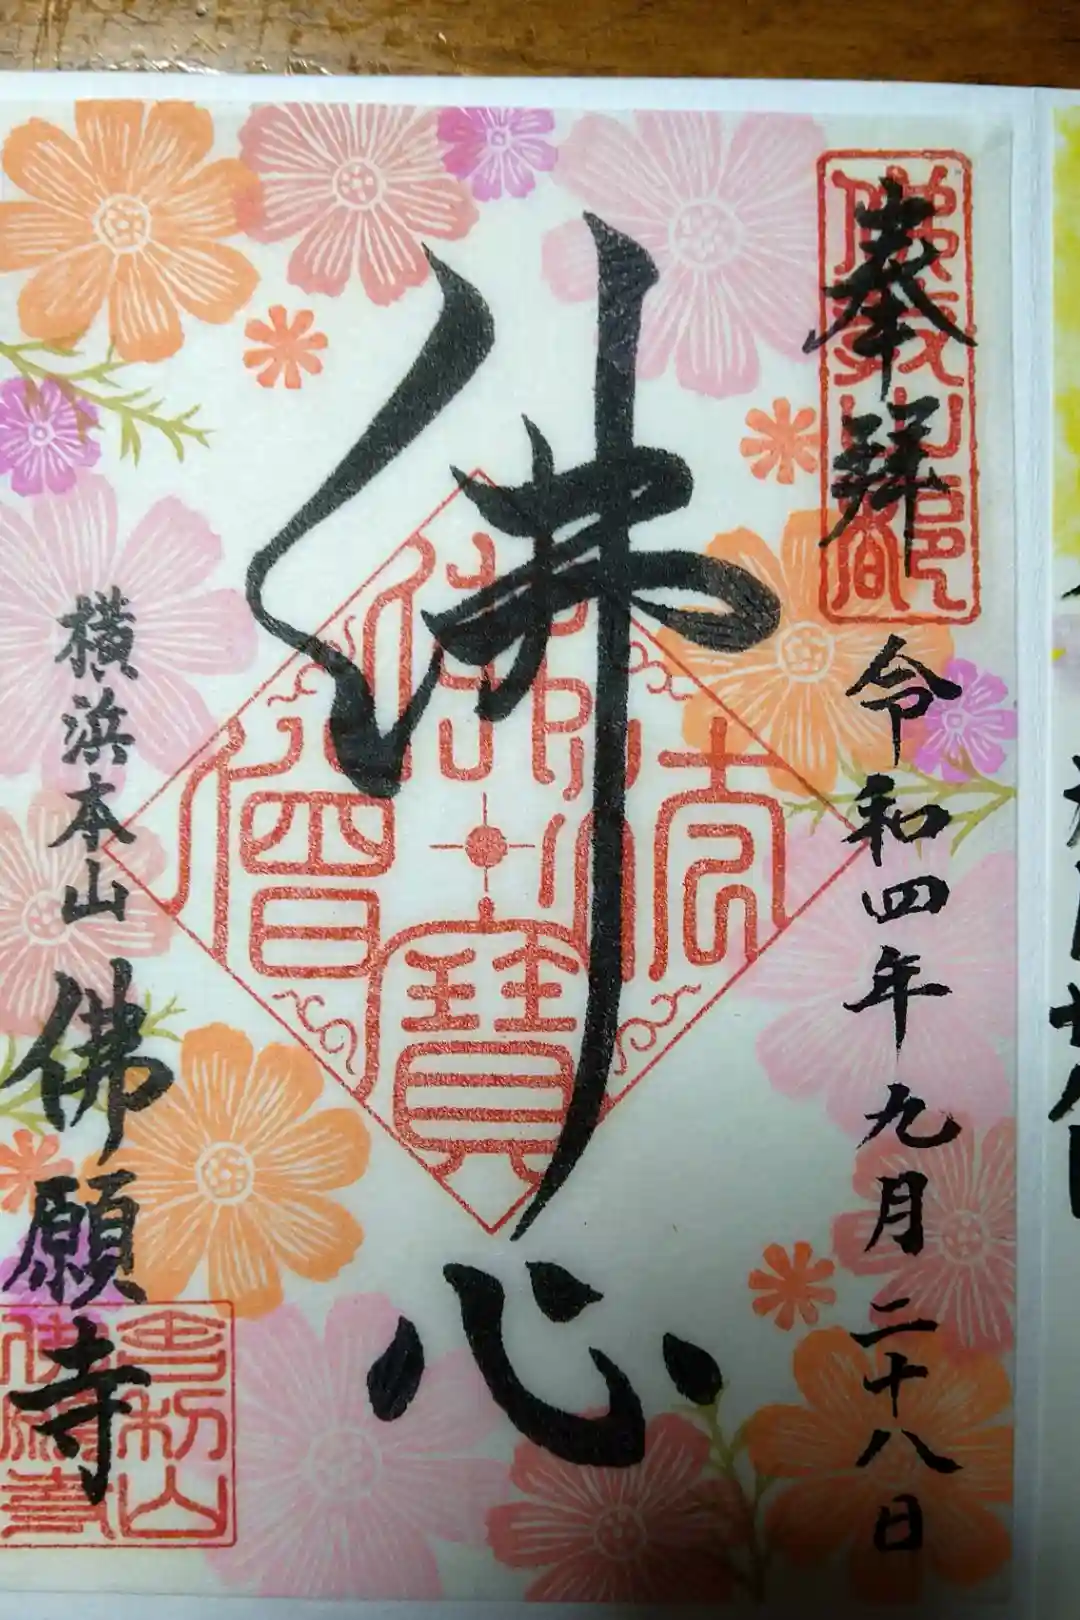 奉拜
令和四年九月二十八日
佛心
佛法僧寶
横浜本山
佛願寺